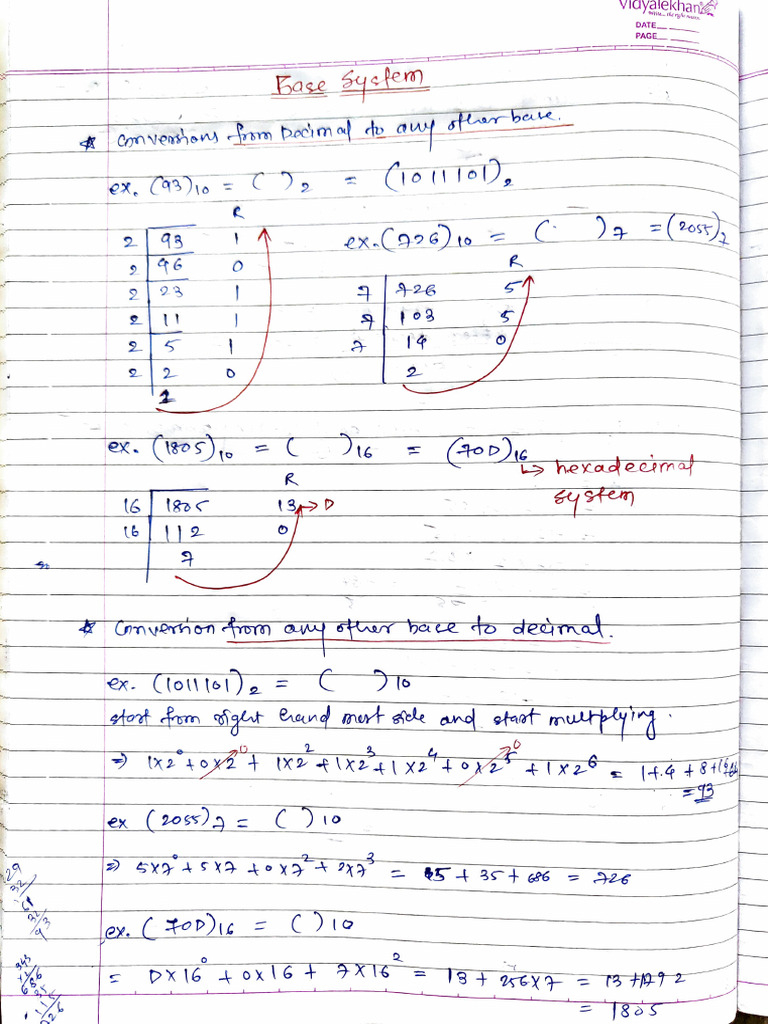 Vidyalekhan
DATE
PAGE
Base System
* Conversions from Decimal to any other base.
ex. (93)10 = ( )2 = (1011101)2
R
2 93 1
2 46 0
2 23 1
2 11 1
2 5 1
2 2 0
1
ex. (726)10 = ( )7 = (2055)7
R
7 726 5
7 103 5
7 14 0
2
ex. (1805)10 = ( )16 = (70D)16
↳ hexadecimal
system
R
16 1805 13 → D
16 112 0
7
* Conversion from any other base to decimal.
ex. (1011101)2 = ( )10
start from right hand most side and start multplying.
⇒ 1×2⁰ + 0×2 0 + 1×2² + 1×2³ + 1×2⁴ + 0×2⁵ 0 + 1×2⁶ = 1+4+8+16
= 93
ex (2055)7 = ( )10
⇒ 5×7⁰ + 5×7 + 0×7² + 2×7³ = 5 + 35 + 686 = 726
ex. (70D)16 = ( )10
= D×16⁰ + 0×16 + 7×16² = 13 + 256×7 = 13 + 1792
= 1805
29
32
343
686
35
726